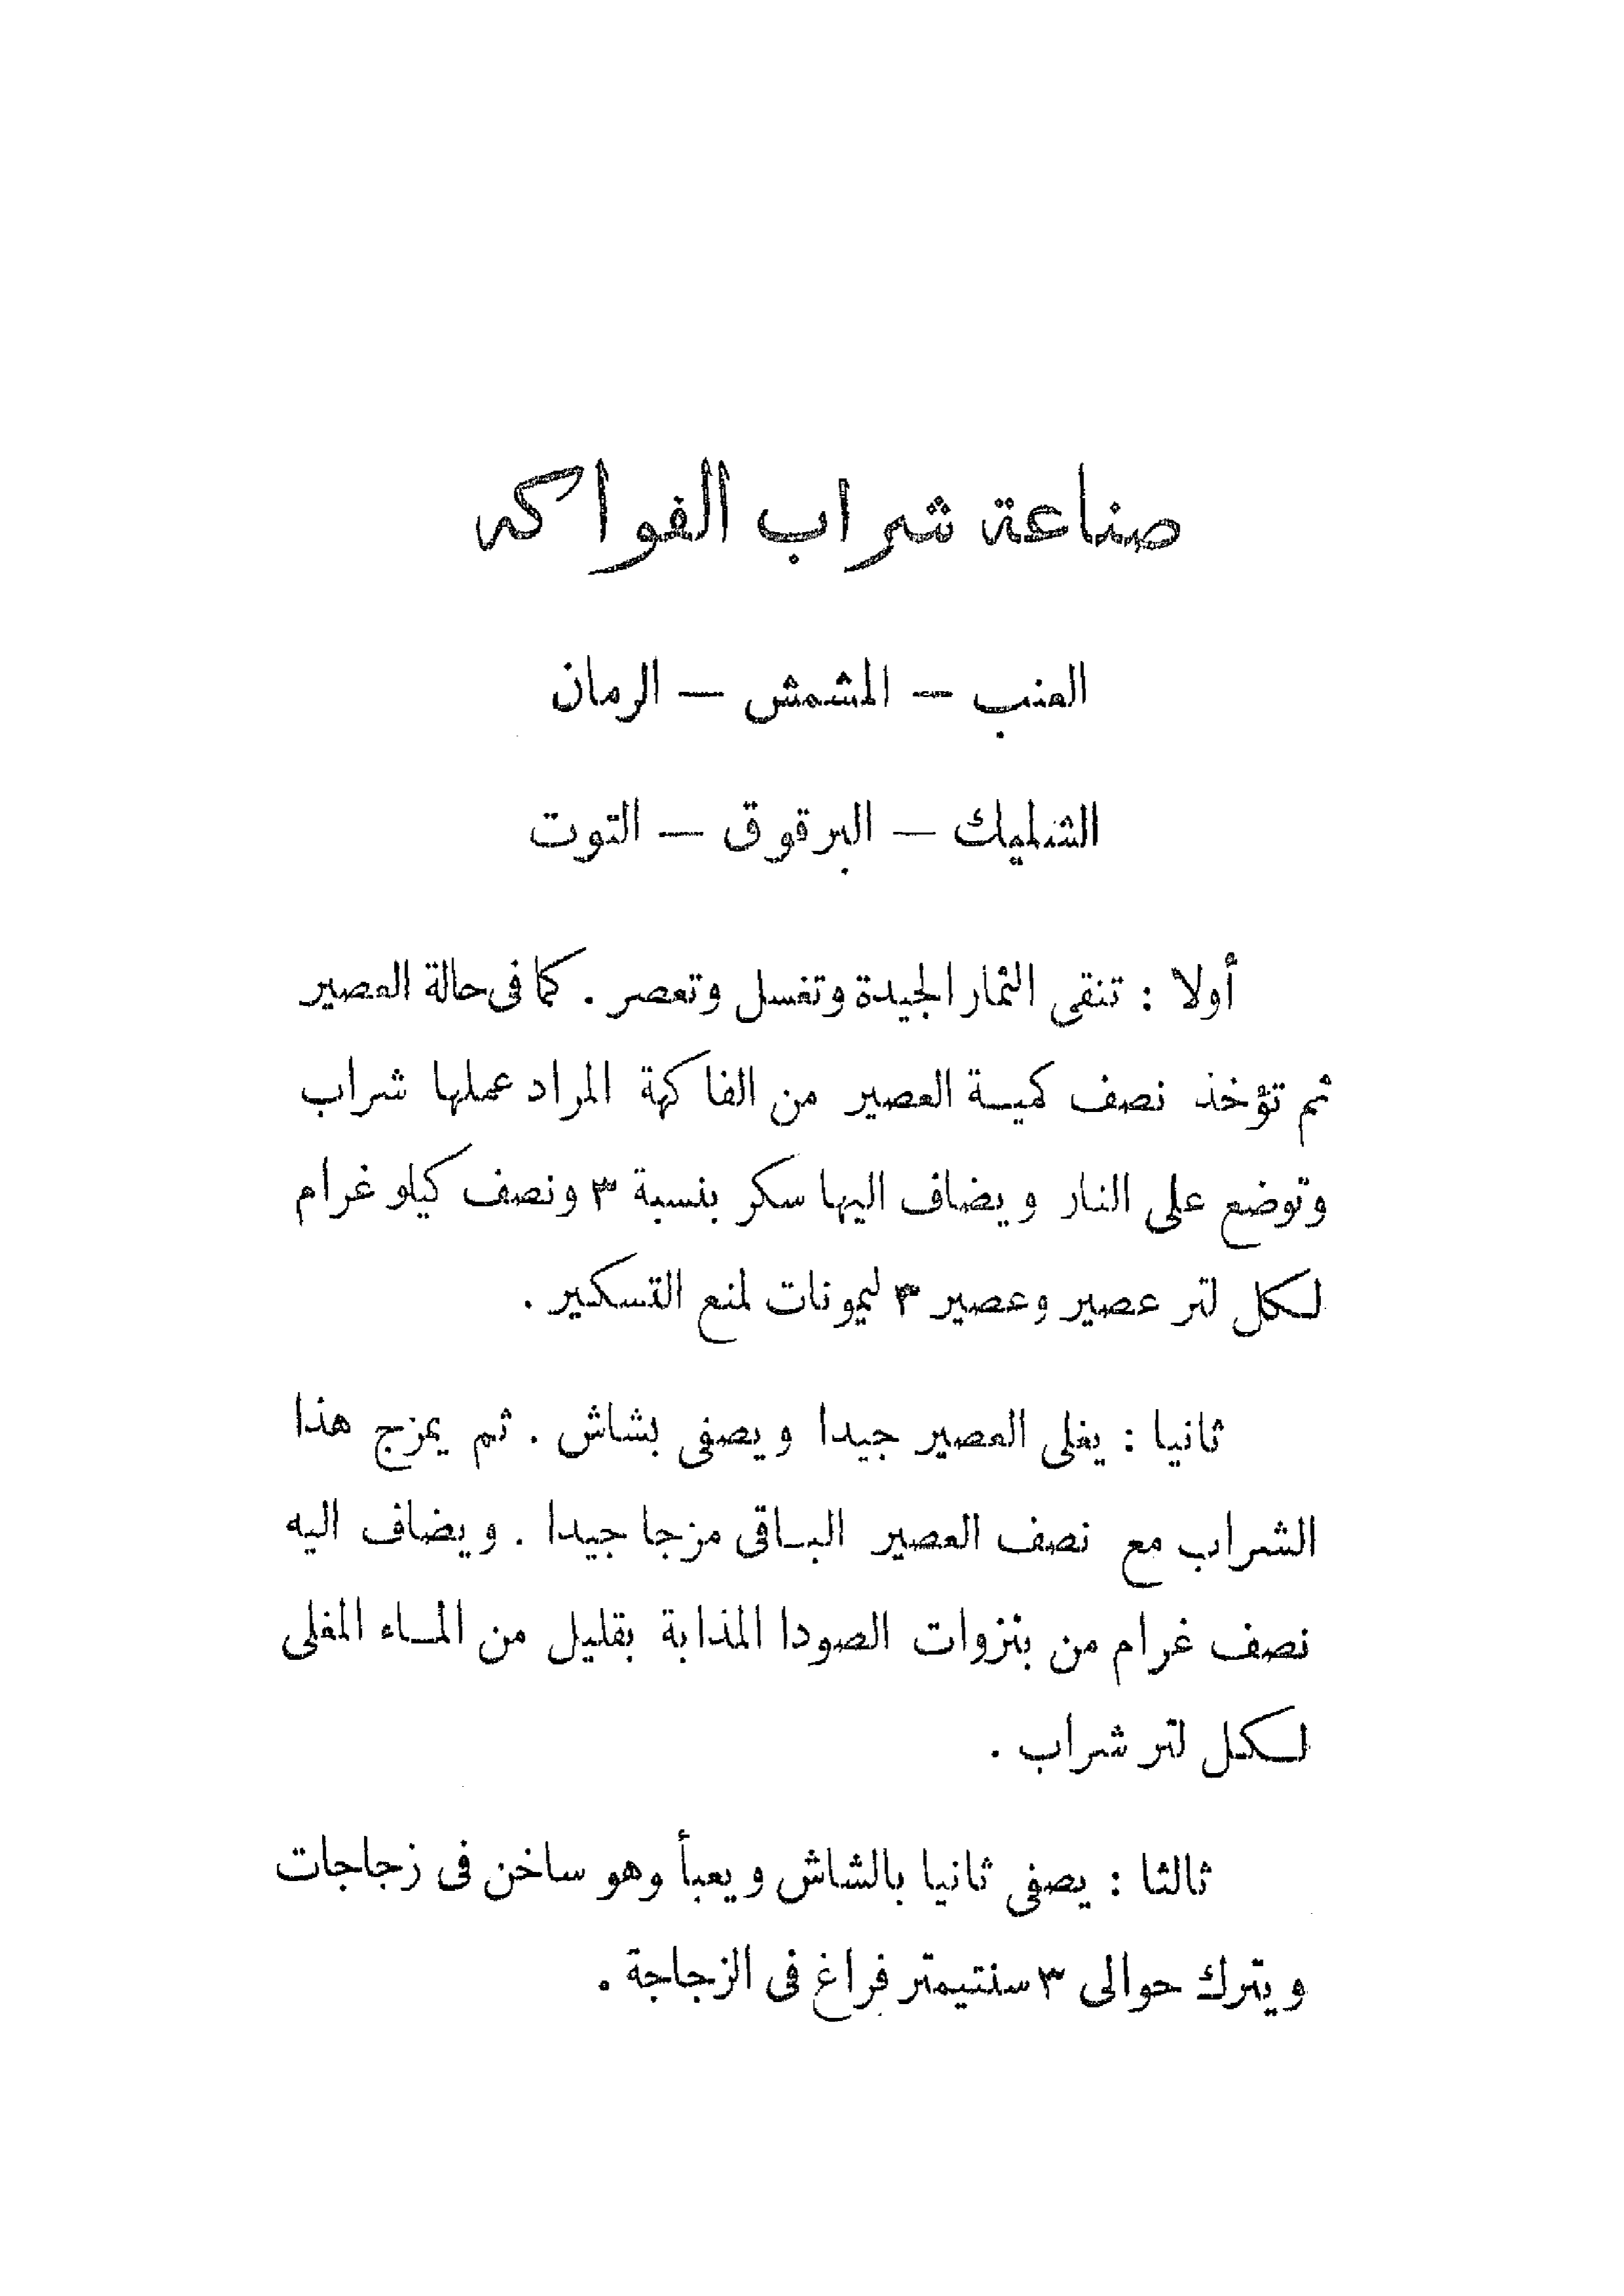 صناعة شراب الفواكه
العنب – المشمش – الرمان
الشليك – البرقوق – التوت
أولا : تنقى الثمار الجيدة وتغسل وتعصر . كما فى حالة العصير
ثم تؤخذ نصف كميـة العصير من الفاكهة المراد عملها شراب
وتوضع على النار ويضاف اليها سكر بنسبة ٣ ونصف كيلو غرام
لـكل لتر عصير وعصير ٣ ليمونات لمنع التسكير .
ثانيا : يغلى العصير جيدا ويصفى بشاش . ثم يمزج هذا
الشراب مع نصف العصير البـاقى مزجا جيدا . ويضاف اليه
نصف غرام من بنزوات الصودا المذابة بقليل من المـاء المغلى
لـكل لتر شراب .
ثالثا : يصفى ثانيا بالشاش ويعبأ وهو ساخن فى زجاجات
ويترك حوالى ٣ سنتيمتر فراغ فى الزجاجة .